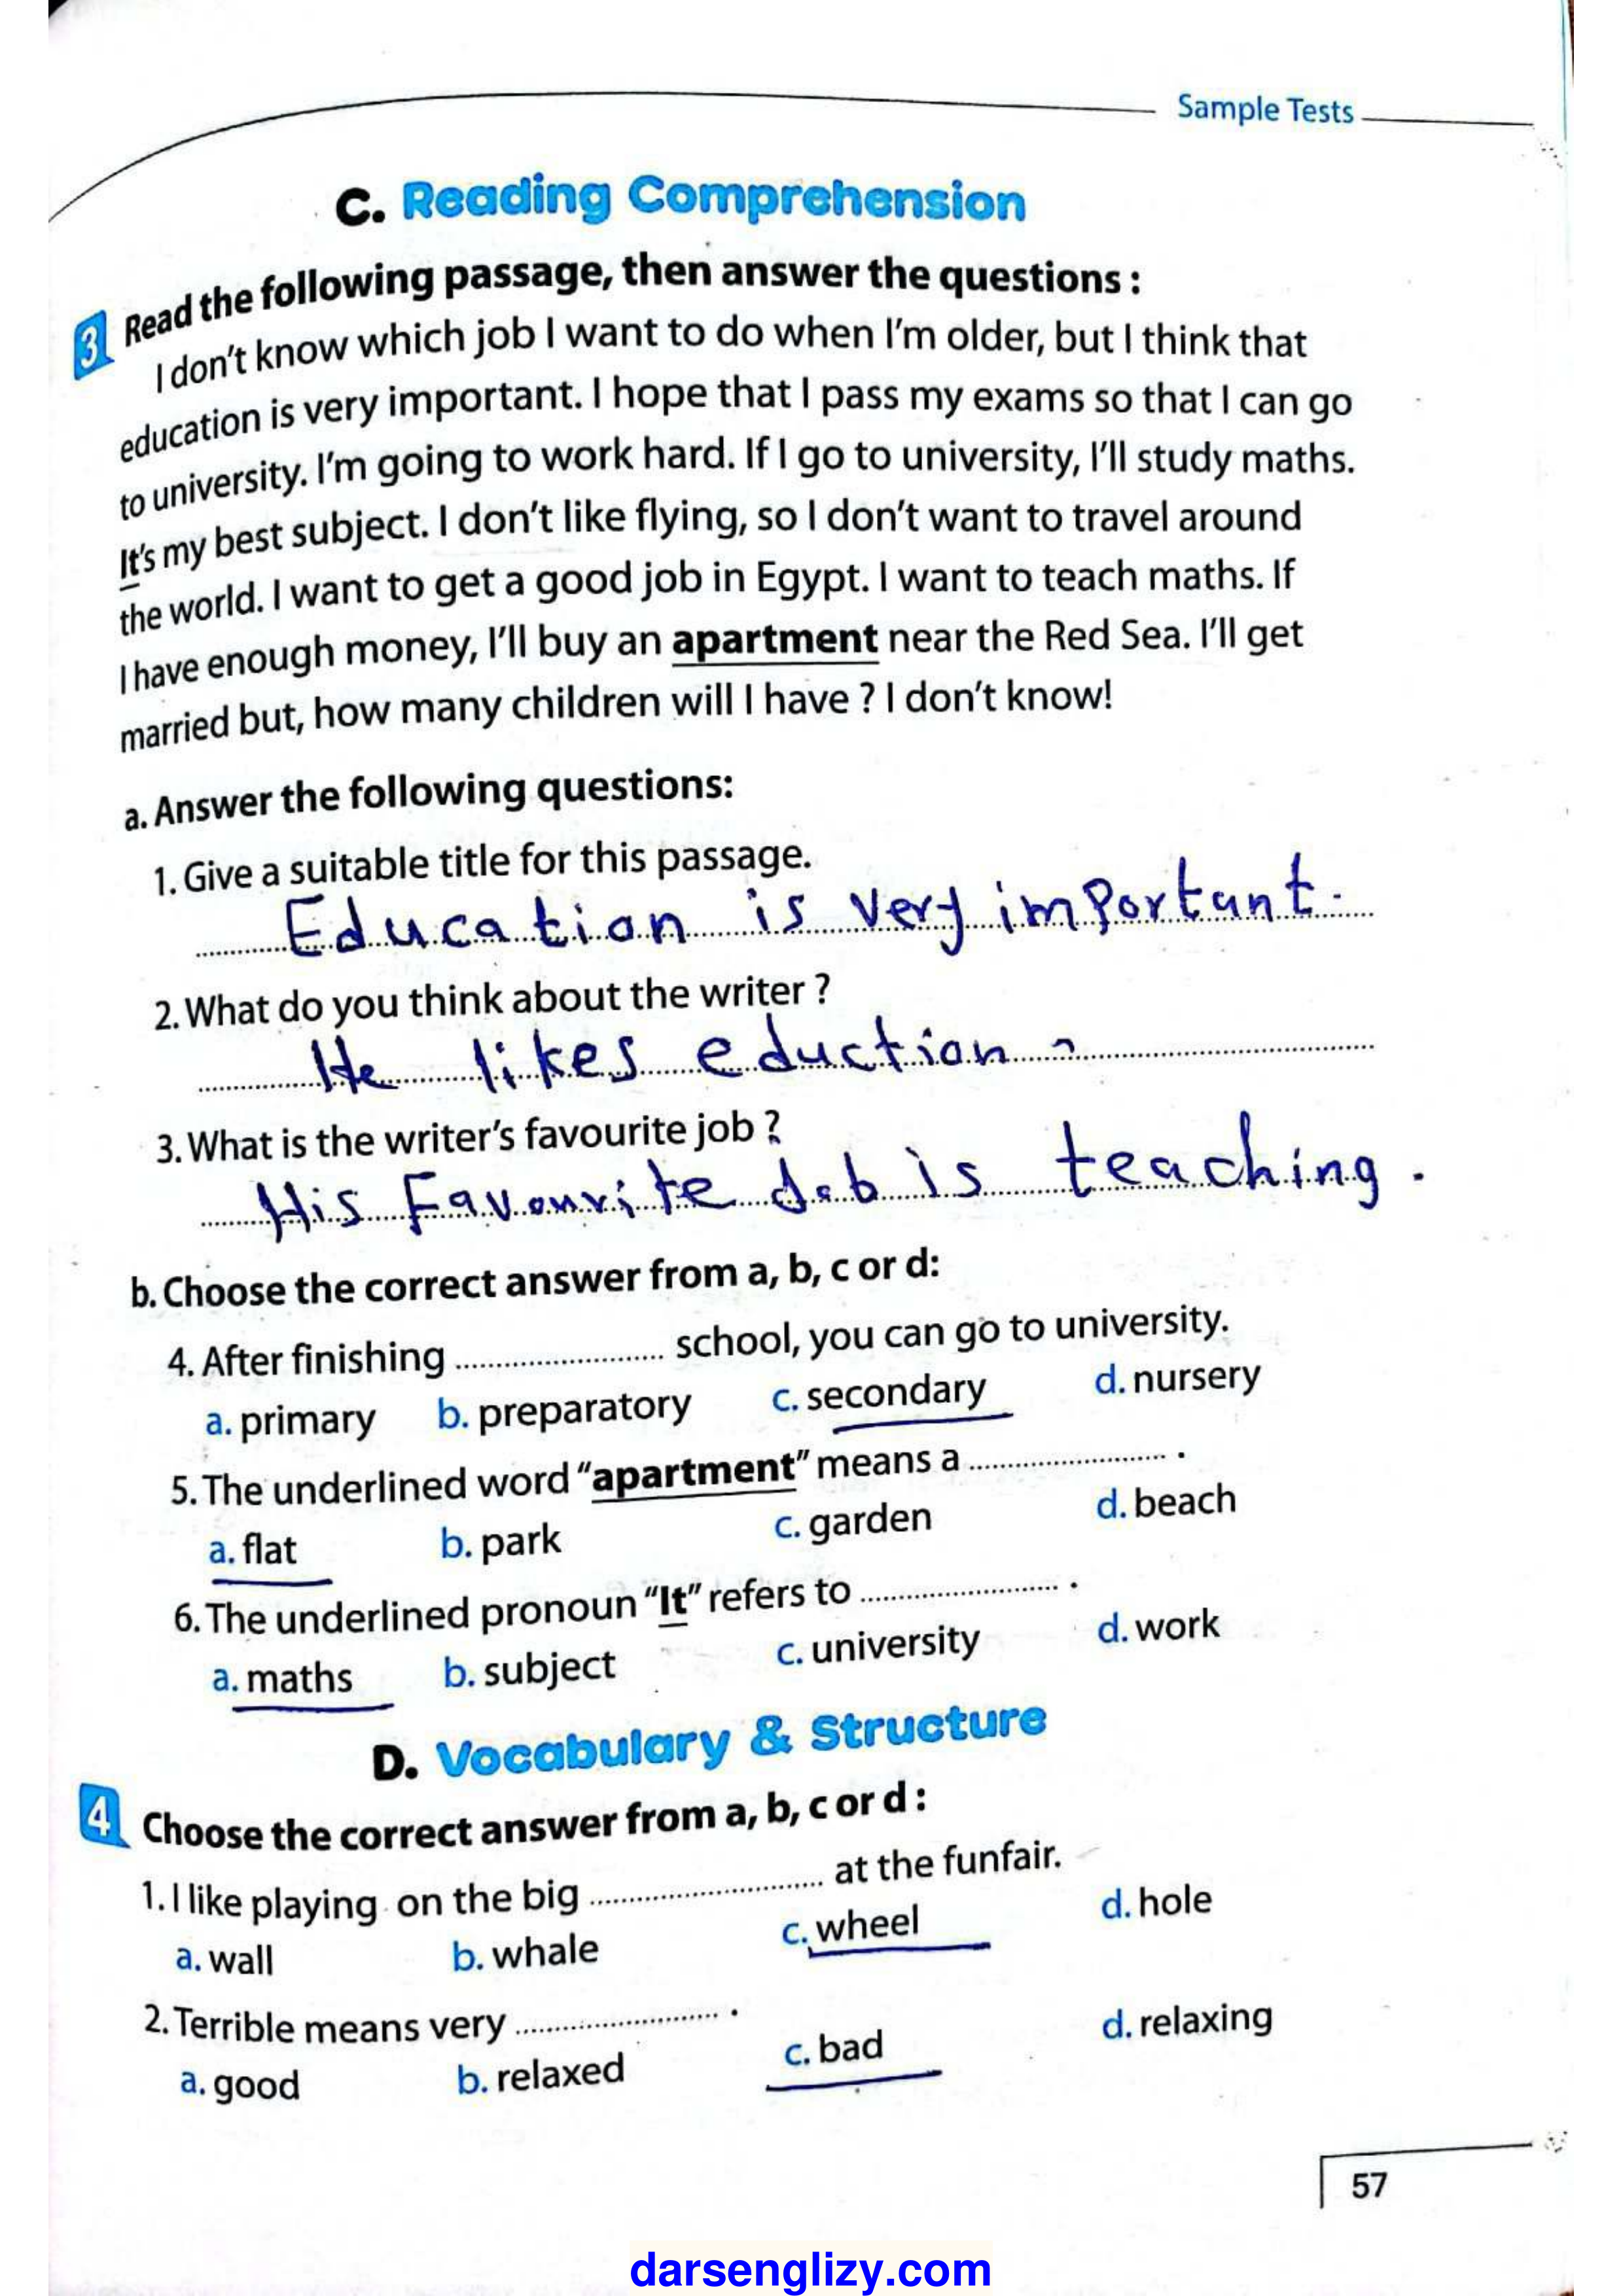 Sample Tests
C. Reading Comprehension
3 Read the following passage, then answer the questions :
I don't know which job I want to do when I'm older, but I think that
education is very important. I hope that I pass my exams so that I can go
to university. I'm going to work hard. If I go to university, I'll study maths.
It's my best subject. I don't like flying, so I don't want to travel around
the world. I want to get a good job in Egypt. I want to teach maths. If
I have enough money, I'll buy an apartment near the Red Sea. I'll get
married but, how many children will I have ? I don't know!
a. Answer the following questions:
1. Give a suitable title for this passage.
Education is very important.
2. What do you think about the writer ?
He likes eduction
3. What is the writer's favourite job ?
His Favourite Job is teaching.
b. Choose the correct answer from a, b, c or d:
4. After finishing ........................ school, you can go to university.
a. primary b. preparatory c. secondary d. nursery
5. The underlined word "apartment" means a ........................ .
a. flat b. park c. garden d. beach
6. The underlined pronoun "It" refers to ........................ .
a. maths b. subject c. university d. work
D. Vocabulary & Structure
4 Choose the correct answer from a, b, c or d :
1. I like playing on the big ........................ at the funfair.
a. wall b. whale c. wheel d. hole
2. Terrible means very ........................ .
a. good b. relaxed c. bad d. relaxing
57
darsenglizy.com